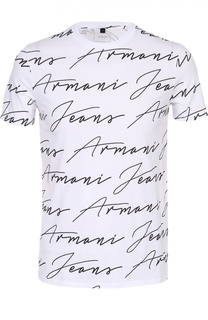 Armani Jeans
Jeans Armani
Armani Jeans
Jeans Armani
Armani Jeans
Jeans Armani
Armani Jeans